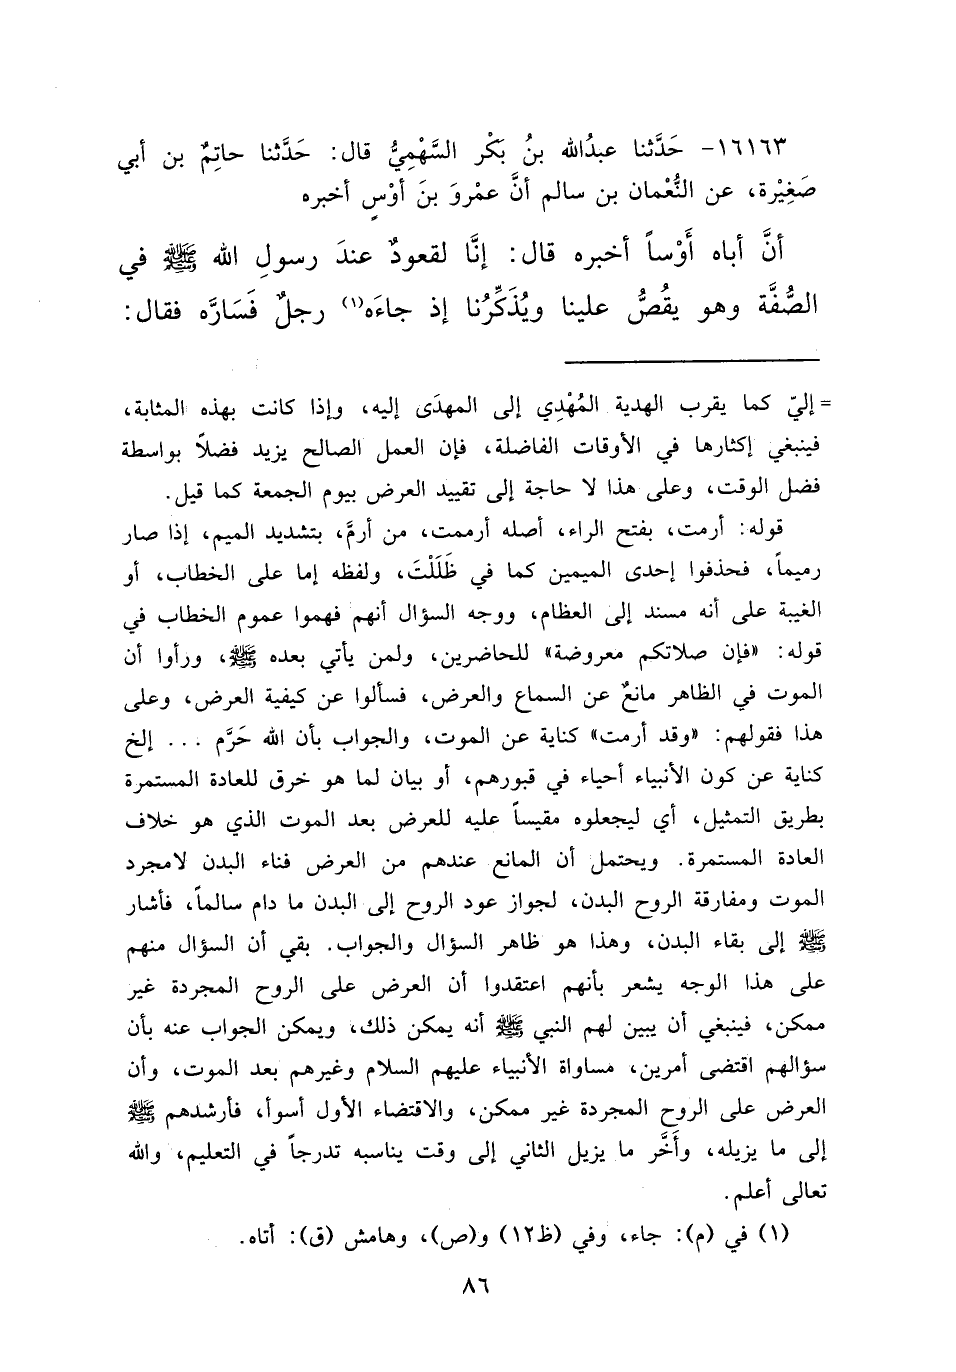 ١٦١٦٣- حَدَّثنا عبدُالله بنُ بَكْر السَّهْمِيُّ قال: حَدَّثنا حاتِمٌ بن أبي
صَغِيْرة، عن النُّعْمان بن سالم أنَّ عمْروَ بنَ أوْسٍ أخبره
أنَّ أباه أَوْساً أخبره قال: إنَّا لقعودٌ عندَ رسولِ الله ﷺ في
الصُّفَّة وهو يقُصُّ علينا ويُذَكِّرُنا إذ جاءَه(١) رجلٌ فَسَارَّه فقال:
= إليّ كما يقرب الهدية المُهْدِي إلى المهدَى إليه، وإذا كانت بهذه المثابة،
فينبغي إكثارها في الأوقات الفاضلة، فإن العمل الصالح يزيد فضلاً بواسطة
فضل الوقت، وعلى هذا لا حاجة إلى تقييد العرض بيوم الجمعة كما قيل.
قوله: أرمت، بفتح الراء، أصله أرممت، من أرمَّ، بتشديد الميم، إذا صار
رميماً، فحذفوا إحدى الميمين كما في ظَلَلْتَ، ولفظه إما على الخطاب، أو
الغيبة على أنه مسند إلى العظام، ووجه السؤال أنهم فهموا عموم الخطاب في
قوله: «فإن صلاتكم معروضة» للحاضرين، ولمن يأتي بعده ﷺ، ورأوا أن
الموت في الظاهر مانعٌ عن السماع والعرض، فسألوا عن كيفية العرض، وعلى
هذا فقولهم: «وقد أرمت» كناية عن الموت، والجواب بأن الله حَرَّم ... إلخ
كناية عن كون الأنبياء أحياء في قبورهم، أو بيان لما هو خرق للعادة المستمرة
بطريق التمثيل، أي ليجعلوه مقيساً عليه للعرض بعد الموت الذي هو خلاف
العادة المستمرة. ويحتمل أن المانع عندهم من العرض فناء البدن لامجرد
الموت ومفارقة الروح البدن، لجواز عود الروح إلى البدن ما دام سالماً، فأشار
ﷺ إلى بقاء البدن، وهذا هو ظاهر السؤال والجواب. بقي أن السؤال منهم
على هذا الوجه يشعر بأنهم اعتقدوا أن العرض على الروح المجردة غير
ممكن، فينبغي أن يبين لهم النبي ﷺ أنه يمكن ذلك، ويمكن الجواب عنه بأن
سؤالهم اقتضى أمرين، مساواة الأنبياء عليهم السلام وغيرهم بعد الموت، وأن
العرض على الروح المجردة غير ممكن، والاقتضاء الأول أسوأ، فأرشدهم ﷺ
إلى ما يزيله، وأَخَّر ما يزيل الثاني إلى وقت يناسبه تدرجاً في التعليم، والله
تعالى أعلم.
(١) في (م): جاء، وفي (ظ١٢) و(ص)، وهامش (ق): أتاه.
٨٦